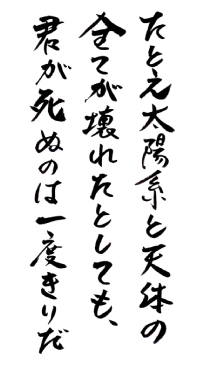 たとえ太陽系と天体の
全てが壊れたとしても、
君が死ぬのは一度きりだ